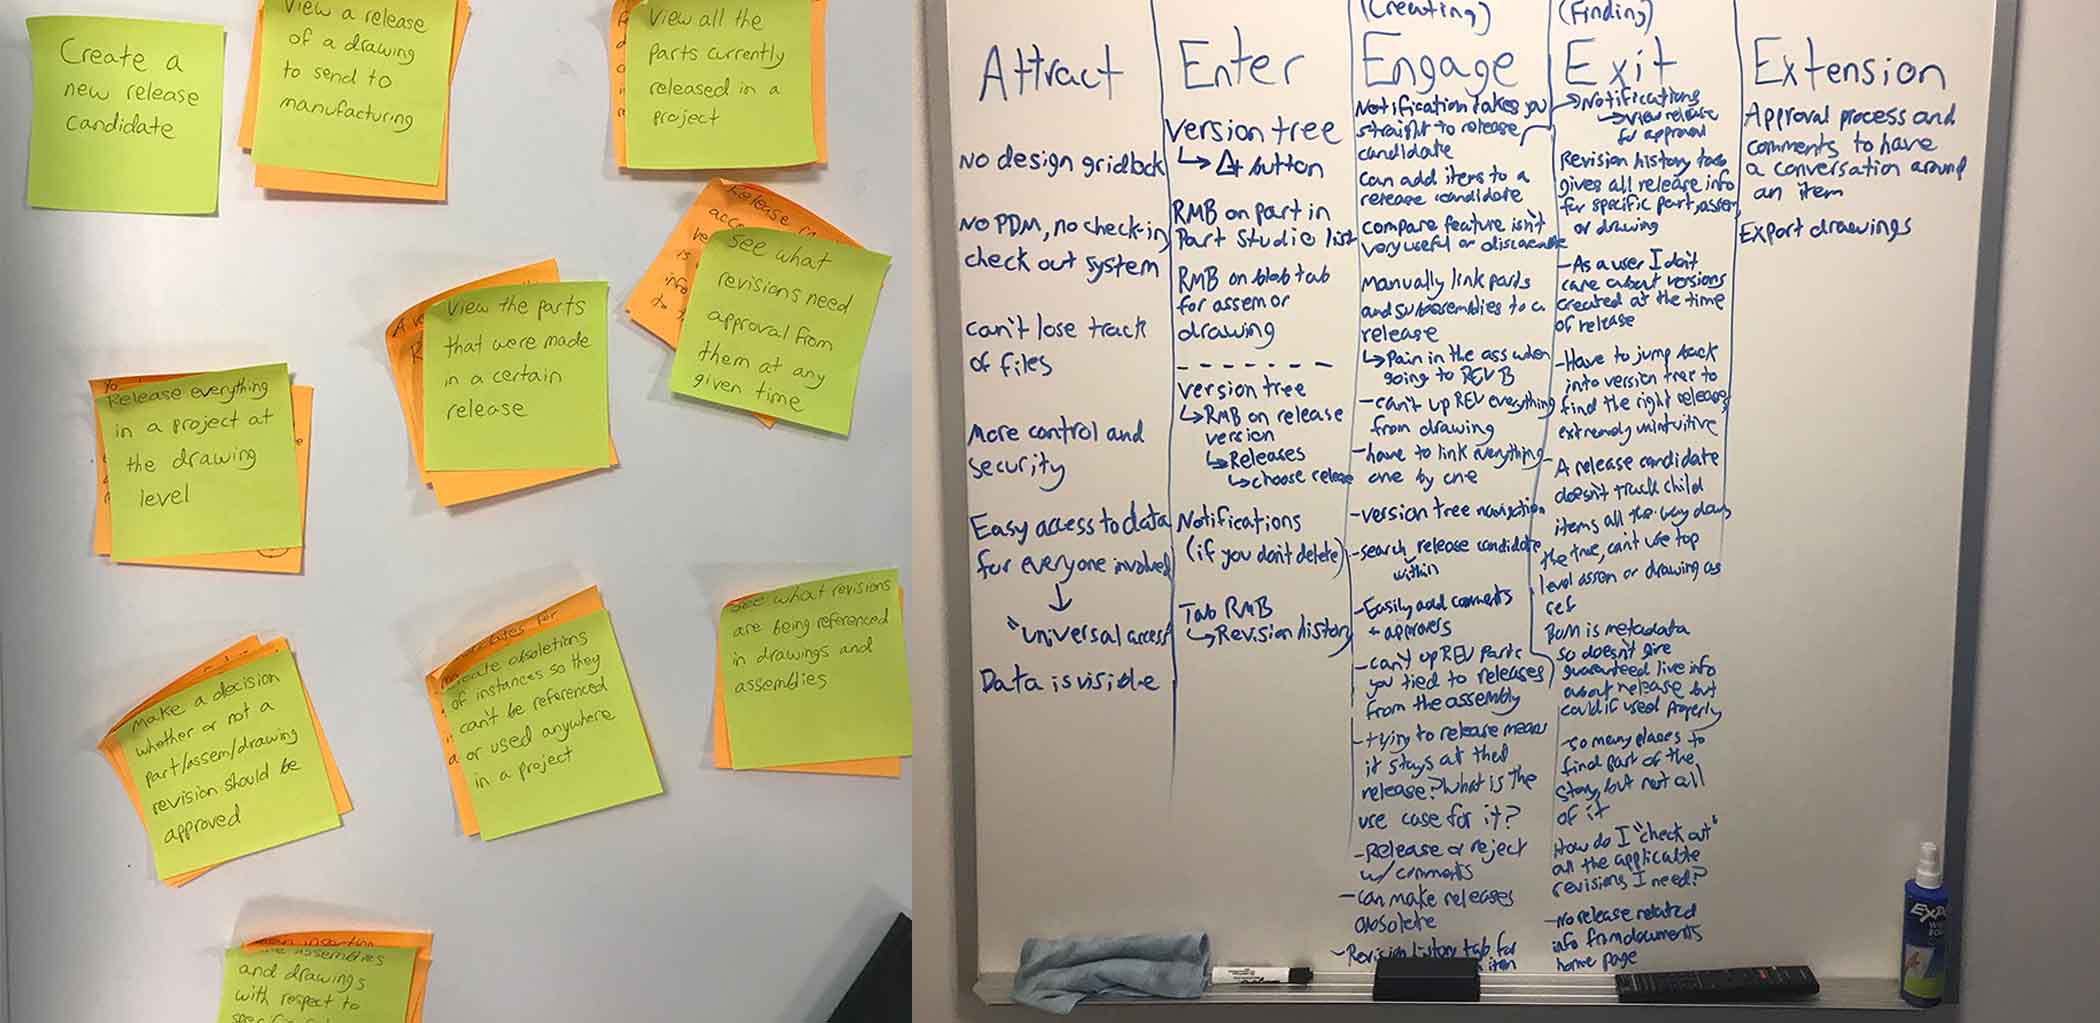 Create a
new release
candidate
View a release
of a drawing
to send to
manufacturing
View all the
parts currently
released in a
project
Release
acce
is
info
See what
revisions need
approval from
them at any
given time
View the parts
that were made
in a certain
release
Release everything
in a project at
the drawing
level
Make a decision
whether or not a
part/assem/drawing
revision should be
approved
obsoletions
of instances so they
can't be referenced
or used anywhere
in a project
See what revisions
are being referenced
in drawings and
assemblies
assemblies
and drawings
with respect to
Attract
No design gridlock
No PDM, no check-in
check out system
can't lose track
of files
More control and
security
Easy access to data
for everyone involved
↓
"universal access
Data is visible
Enter
version tree
↳ button
RMB on part in
Part Studio list
RMB on blob tab
for assem or
drawing
version tree
↳RMB on release
version
↳Releases
↳choose release
Notifications
(if you don't delete)
Tab RMB
↳Revision history
(Creating)
Engage
Notification takes you
straight to release
candidate
can add items to a
release candidate
compare feature isn't
very useful or
Manually link parts
and subassemblies to a
release
↳Pain in the ass when
going to REV B
-can't up REV everything
from drawing
-have to link everything
one by one
-version tree navigation
-search within release candidate
-Easily add comments
+ approvers
-can't up REV parts
you tied to releases
from the assembly
-trying to release mean
it stays at that
release? What is the
use case for it?
-Release or reject
w/ comments
-can make releases
obsolete
-Revision history tab for
item
(Finding)
Exit
→Notifications
↳view release
for approval
Revision history tab
gives all release info
for specific part, assem
or drawing
-As a user I don't
care about versions
created at the time
of release
-Have to jump back
into version tree to
find the right release,
extremely unintuitive
-A release candidate
doesn't track child
items all the way down
the tree, can't use top
level assem or drawing as
ref
BOM is metadata
so doesn't give
guaranteed live info
about release but
could if used properly
-so many places to
find part of the
story, but not all
of it
How do I "check out"
all the applicable
revisions I need?
-No release related
info from documents
home page
Extension
Approval process and
comments to have
a conversation around
an item
Export drawings
EXPO